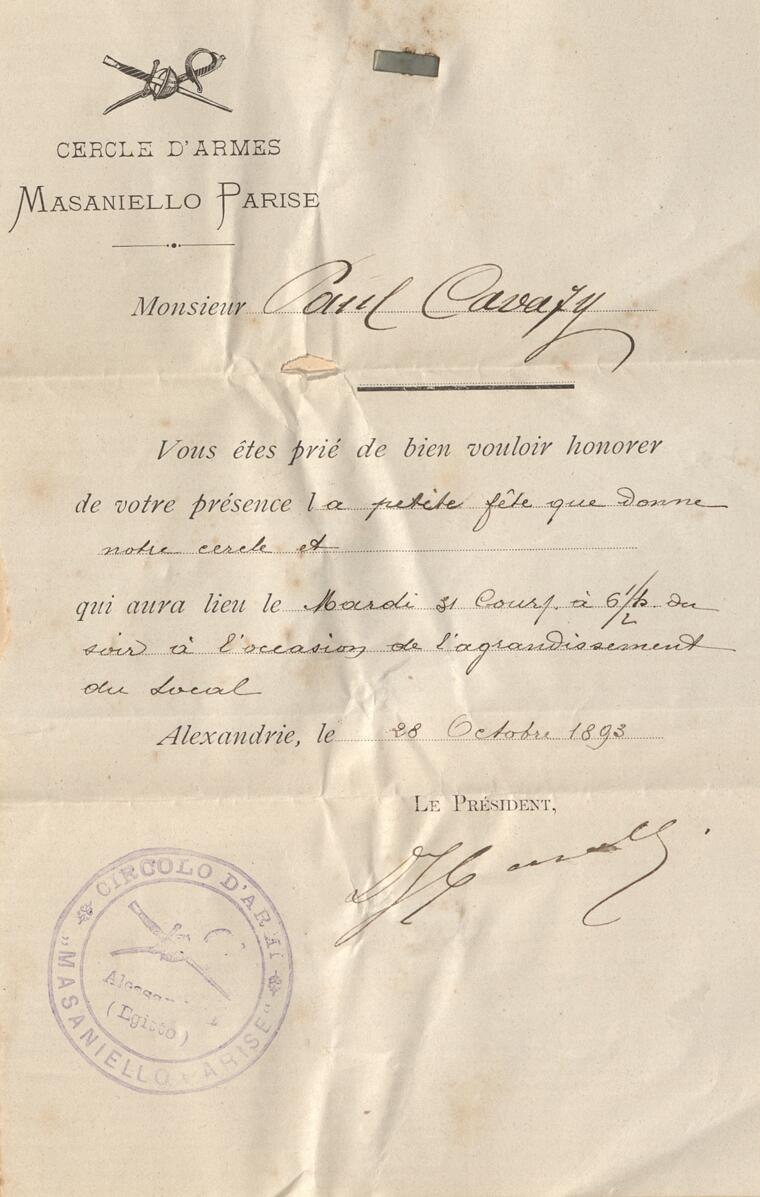 CERCLE D'ARMES
MASANIELLO PARISE
Monsieur Paul Cavafy
Vous êtes prié de bien vouloir honorer
de votre présence la petite fête que donne
notre cercle et
qui aura lieu le Mardi 31 Cour^t. à 6 1/2 h. du
soir à l'occasion de l'agrandissement
du local
Alexandrie, le 28 Octobre 1893
LE PRÉSIDENT,
CIRCOLO D'ARMI
"MASANIELLO PARISE"
(Egitto)